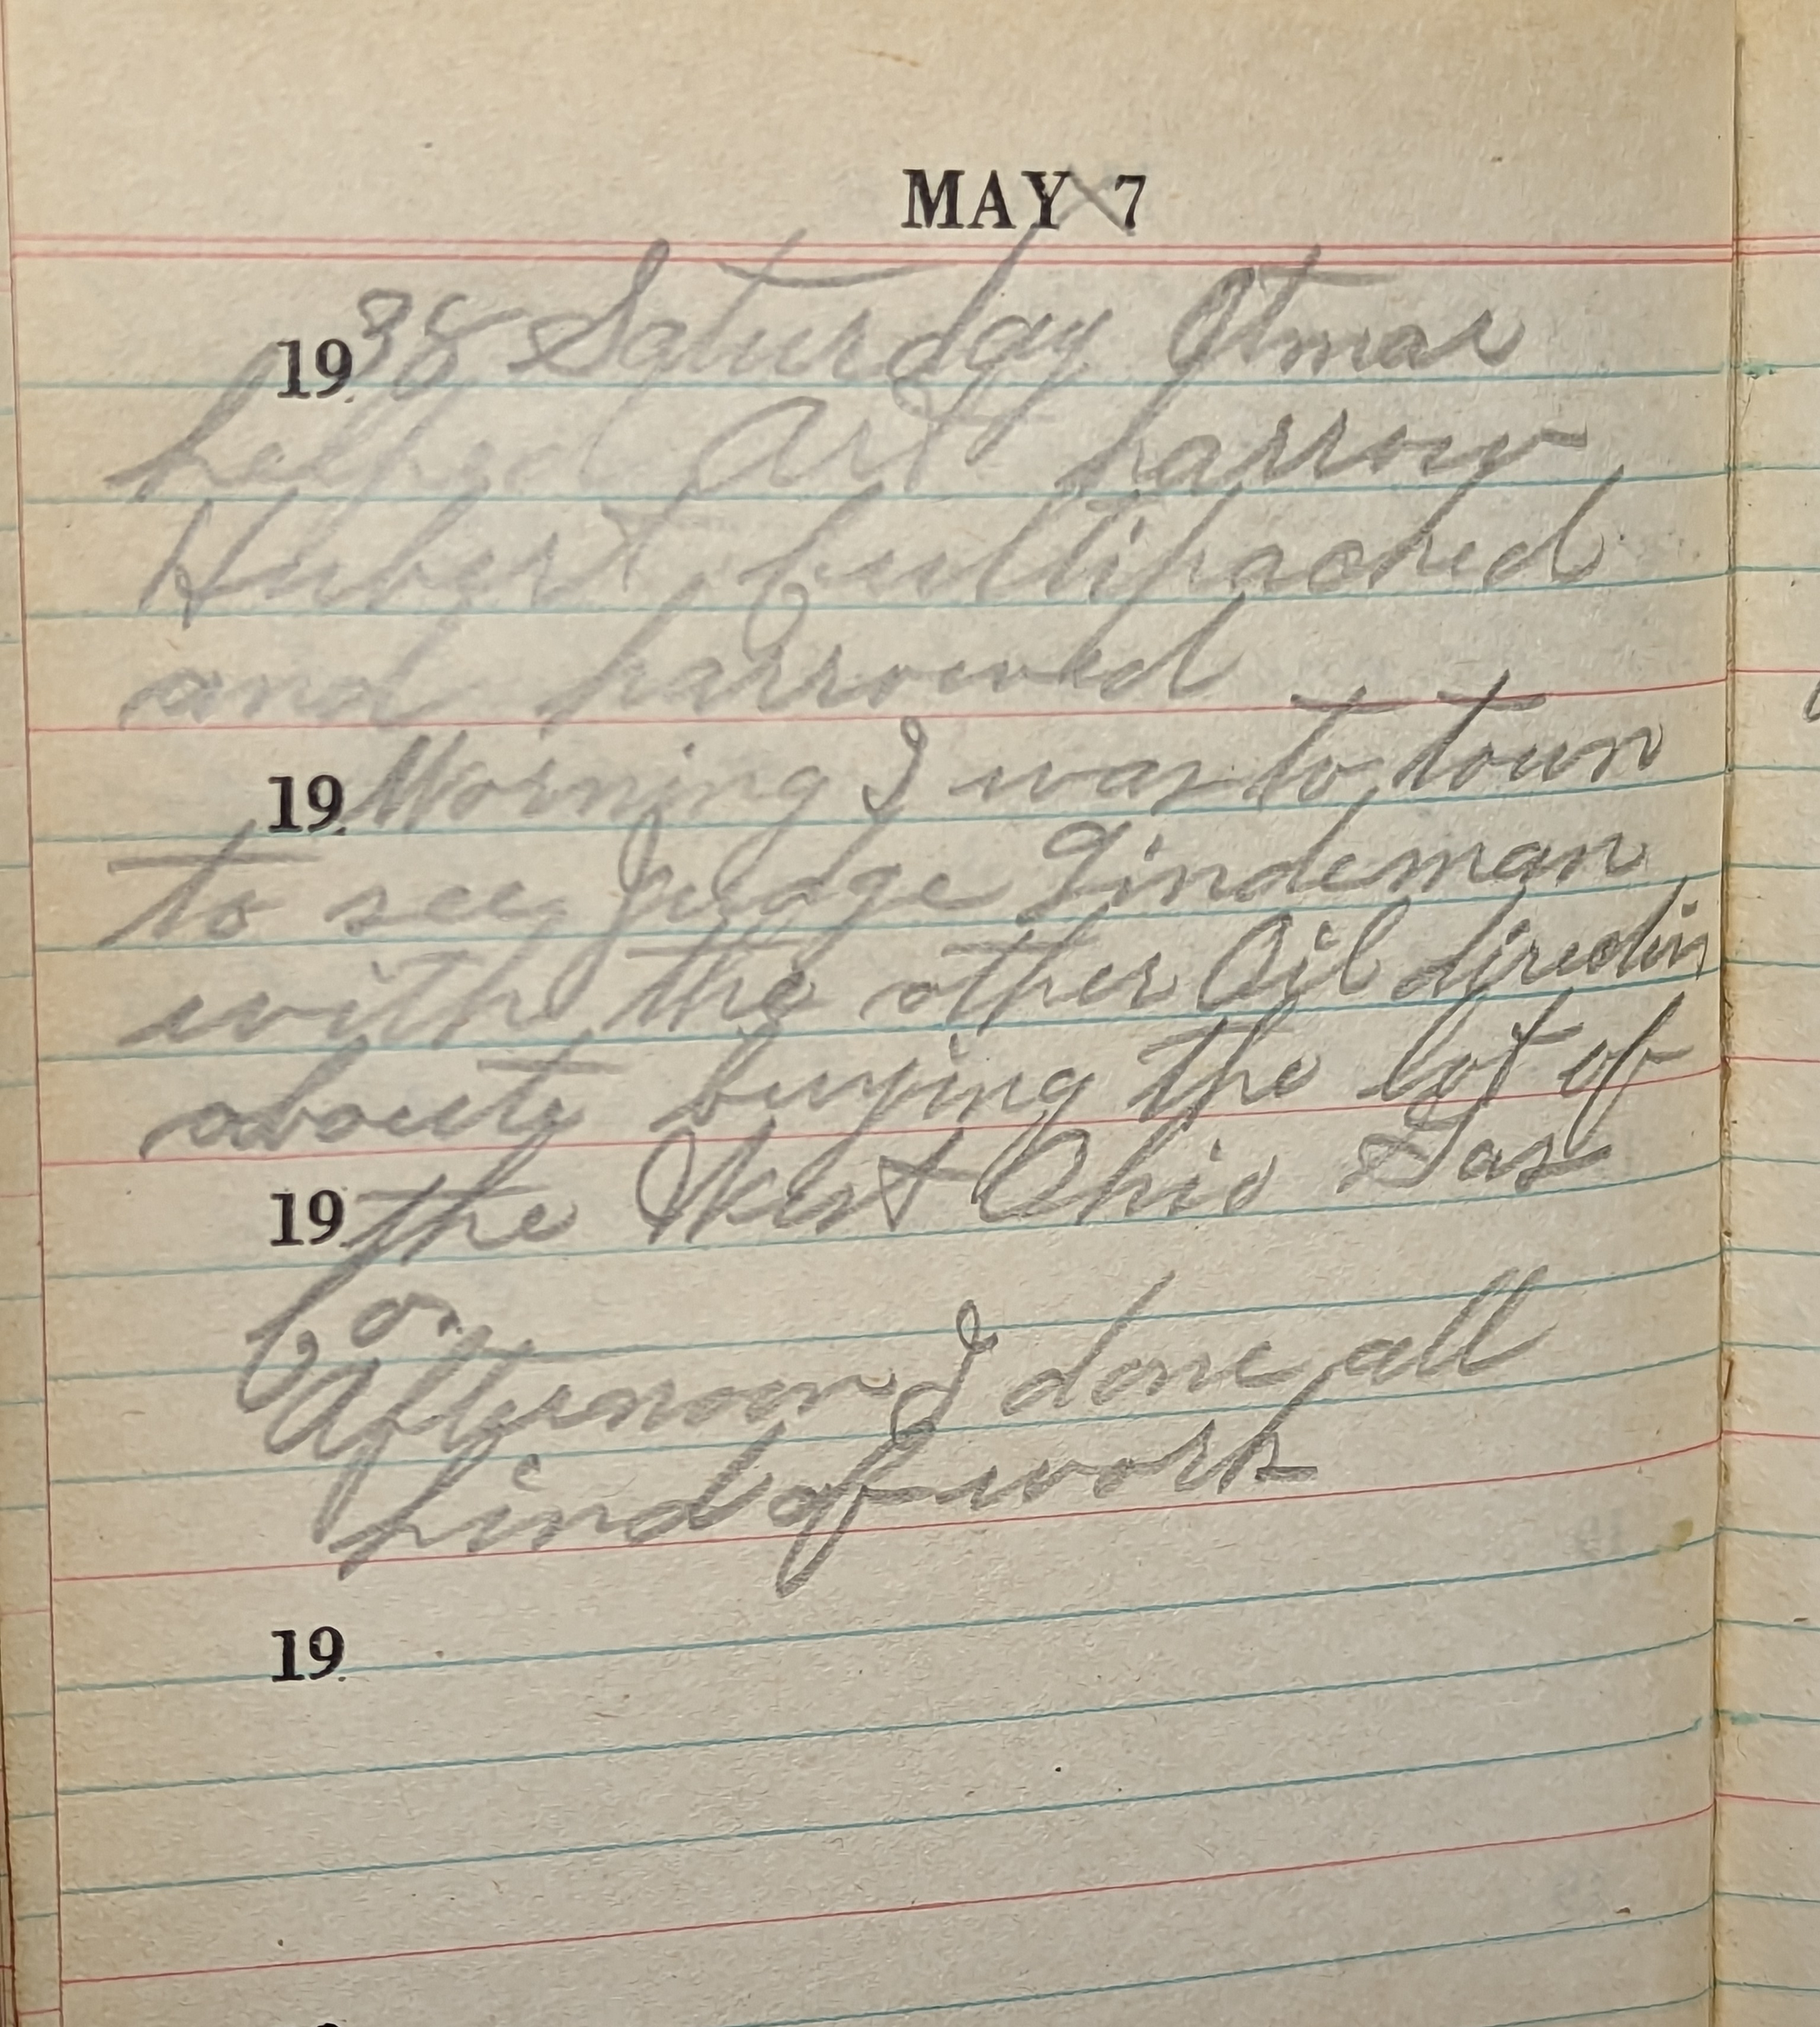 MAY 7
1938 Saturday Otmar
helped Art harrow
Hubert cultipacked
and harrowed
19 Morning I was to town
to see Judge Lindeman
with the other Oil
about buying the lot of
19 the West Ohio Gas
Co.
Afternoon I done all
kind of work
19